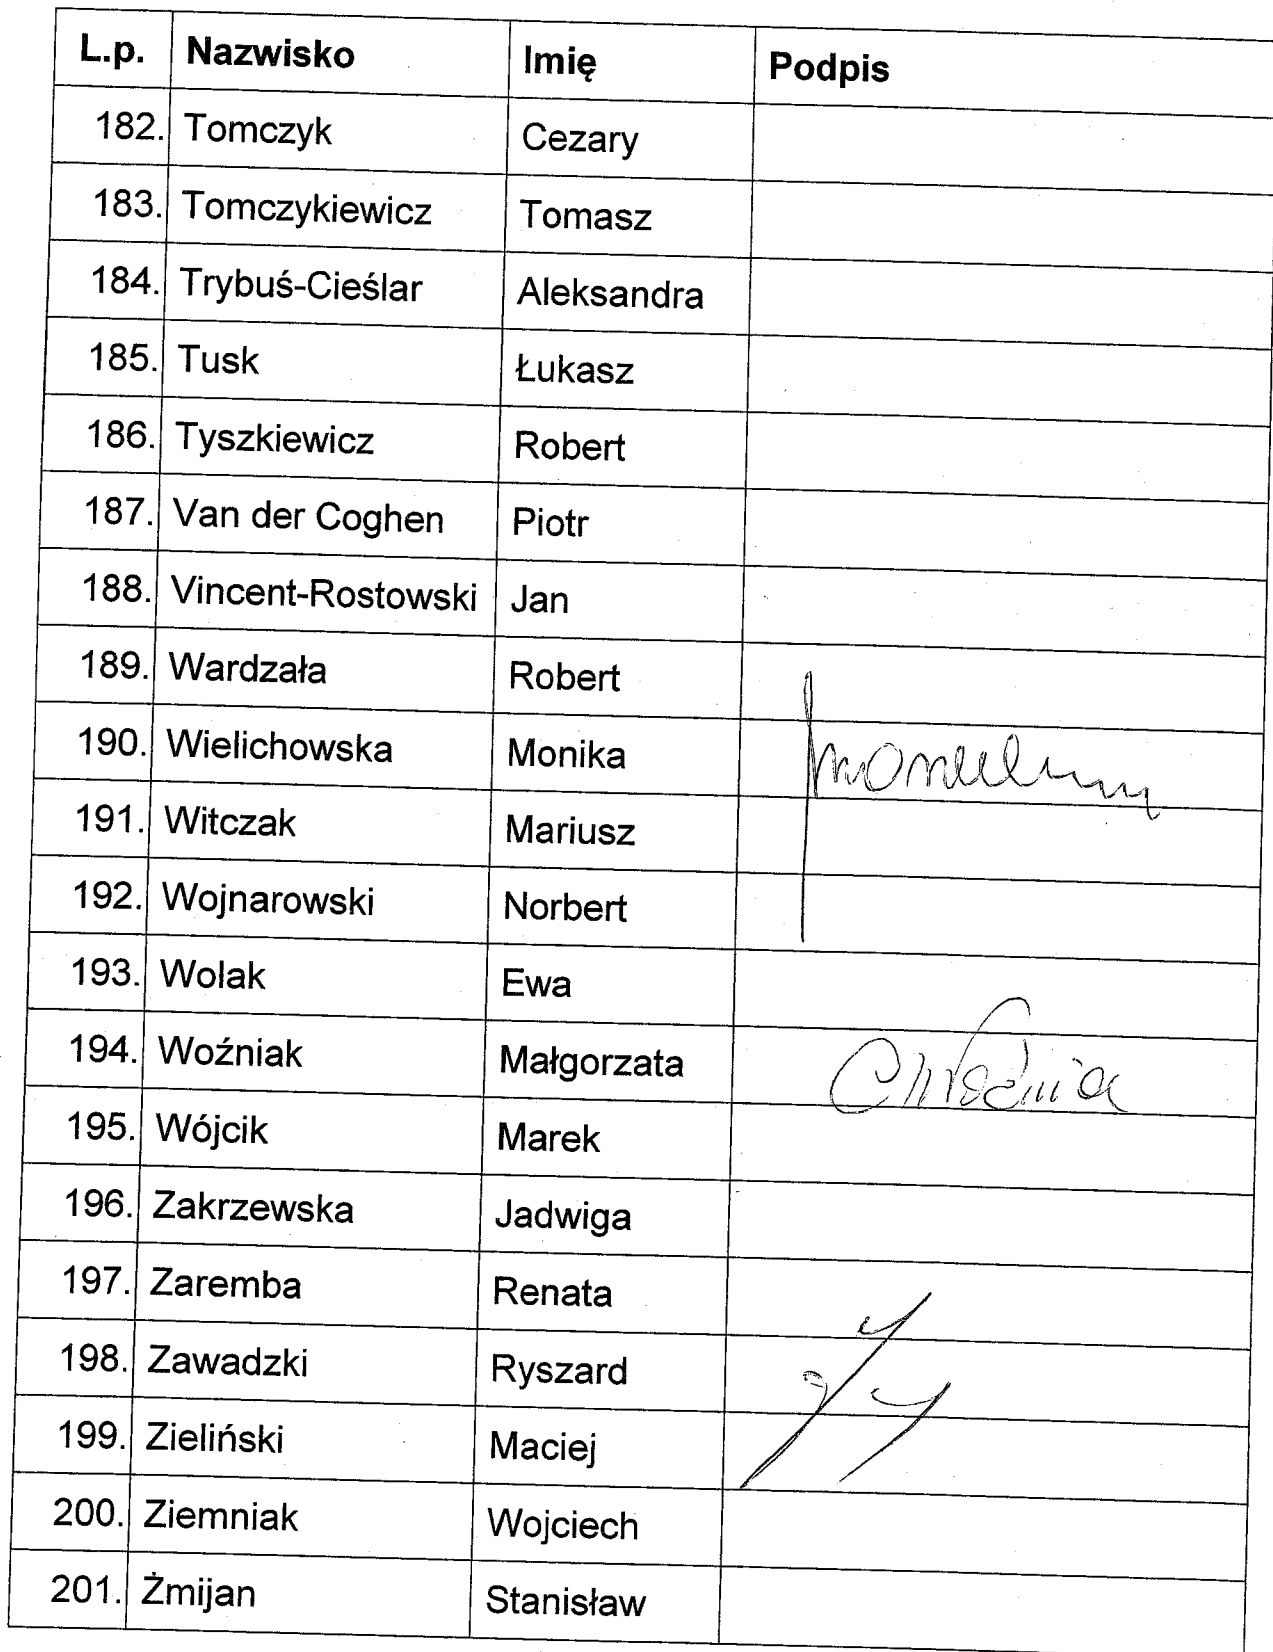 L.p. Nazwisko Imię Podpis
182. Tomczyk Cezary
183. Tomczykiewicz Tomasz
184. Trybuś-Cieślar Aleksandra
185. Tusk Łukasz
186. Tyszkiewicz Robert
187. Van der Coghen Piotr
188. Vincent-Rostowski Jan
189. Wardzała Robert
190. Wielichowska Monika
191. Witczak Mariusz
192. Wojnarowski Norbert
193. Wolak Ewa
194. Woźniak Małgorzata
195. Wójcik Marek
196. Zakrzewska Jadwiga
197. Zaremba Renata
198. Zawadzki Ryszard
199. Zieliński Maciej
200. Ziemniak Wojciech
201. Żmijan Stanisław